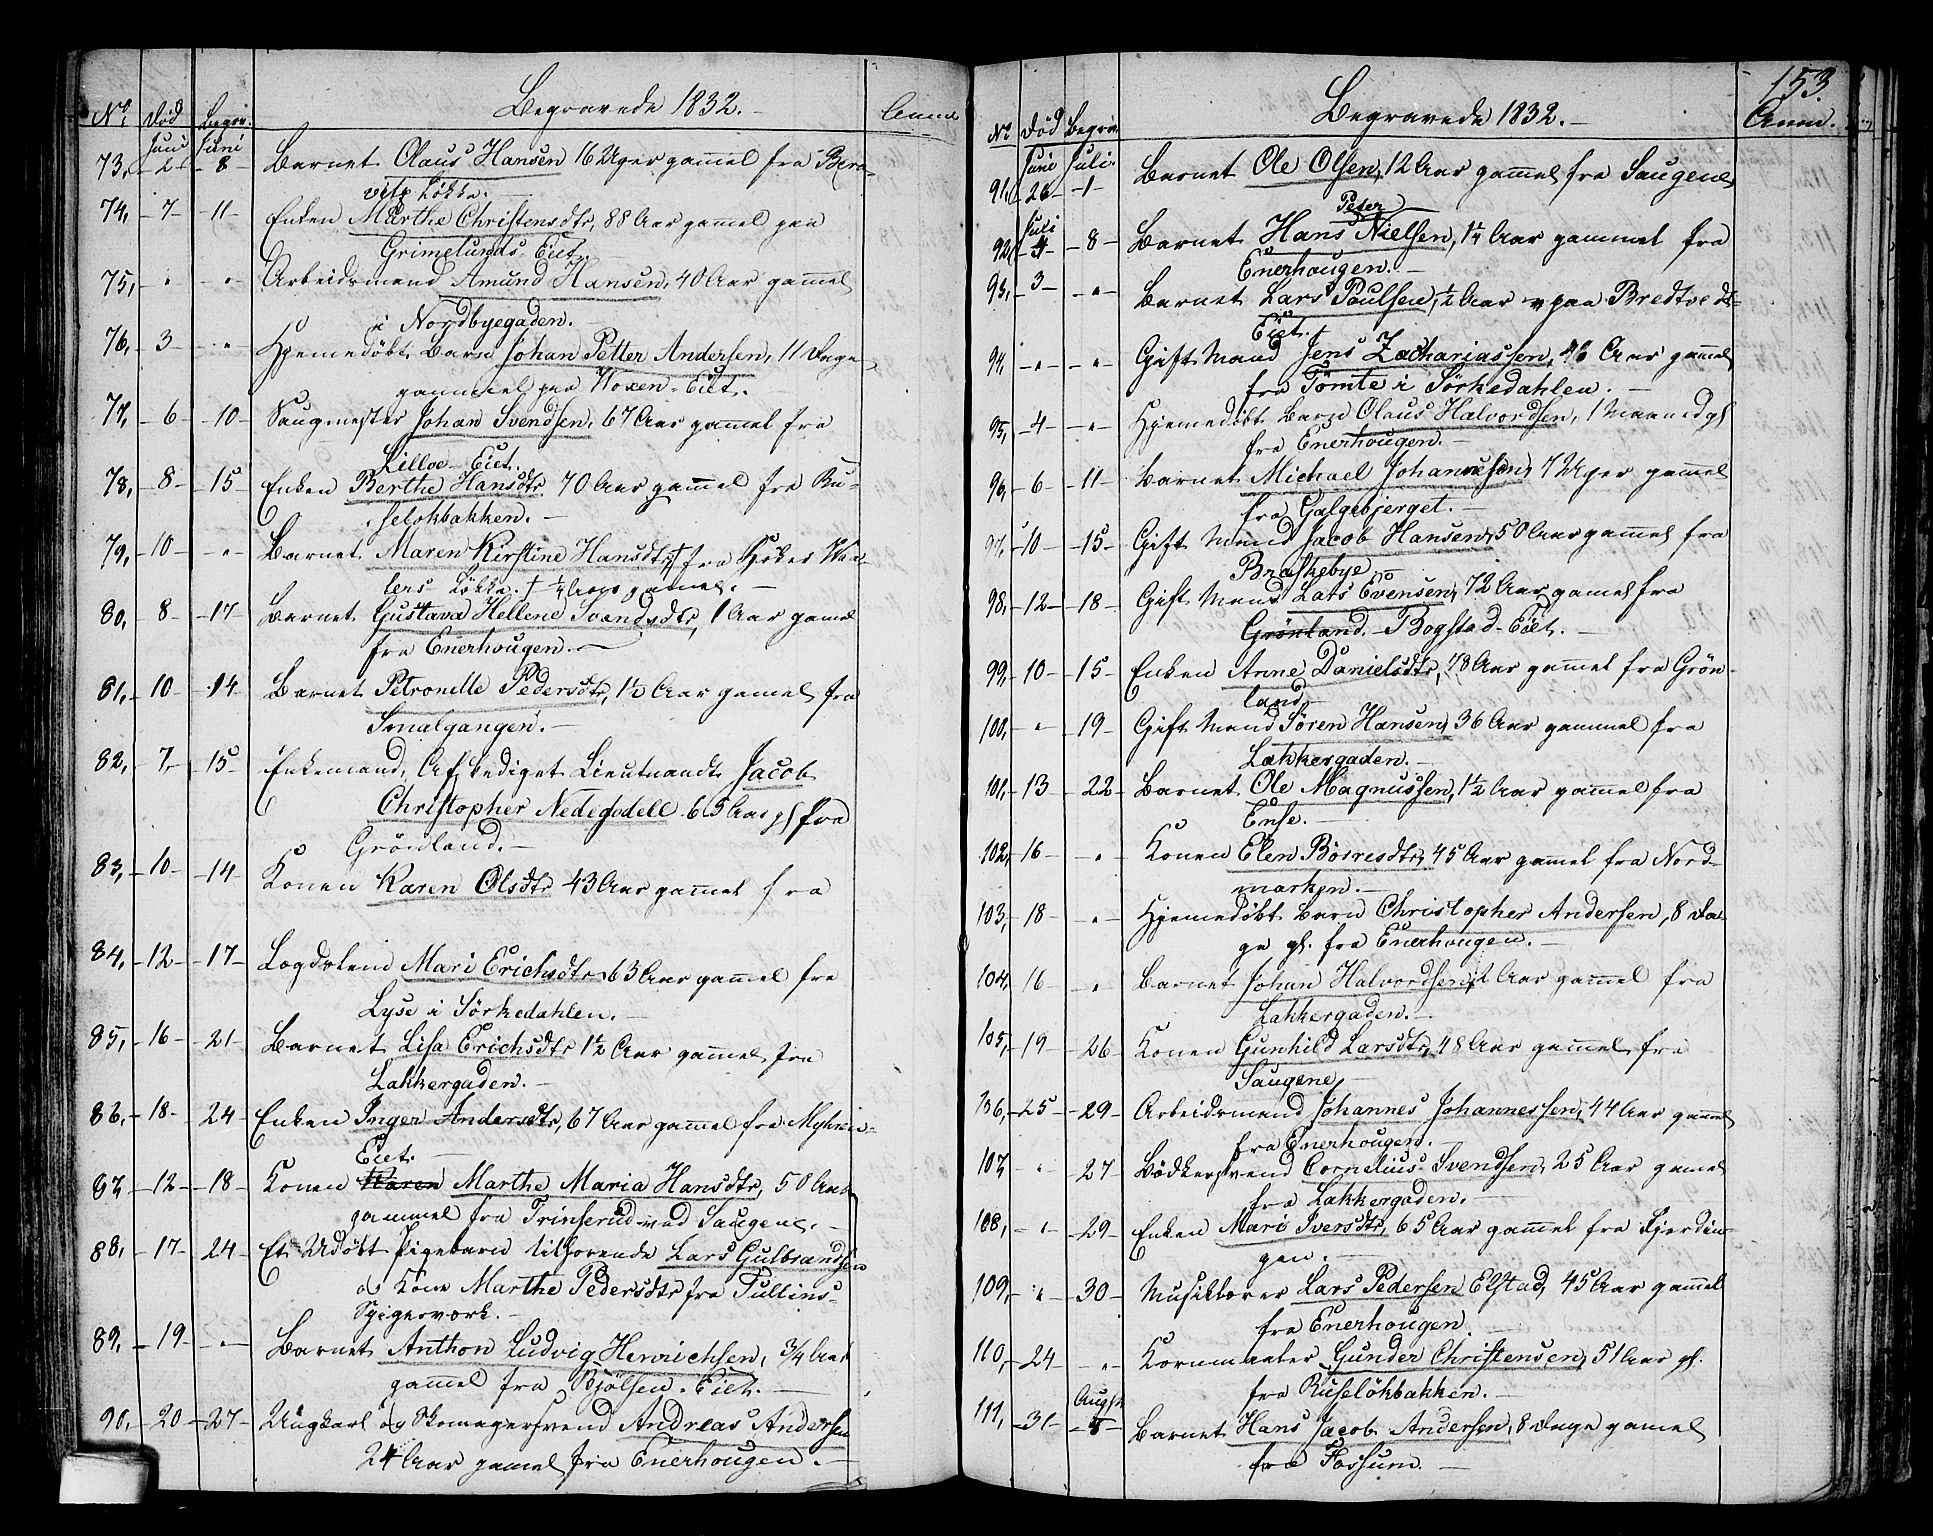 Begravede 1832.-
Anm
No Død Begr.
Juni Juni
73, 2 8 Barnet Olaus Hansen 16 Uger gam̄el fra
Løkke.
74, 7 11 Enken Marthe Christensdtr, 88 Aar gam̄el paa
Grimelunds-Eiet.
75, " " Arbeidsmand Amund Hansen, 40 Aar gam̄el
i Nordbyegaden.
76, 3 " Hjemedøbt Barn Johan Petter Andersen, 11 Dage
gammel paa Woxen-Eiet.
77, 6 10 Saugmester Johan Svendsen, 67 Aar gam̄el fra
Lilloe-Eiet.
78, 8 15 Enken Berthe Hansdtr 70 Aar gam̄el fra Ru-
seløkbakken.-
79, 10 " Barnet Maren Kirstine Hansdtr † fra
Løkke. † ½ Aar gamel.-
80, 8 17 Barnet Gustava Hellene Svendsdtr, 1 Aar gamel
fra Enerhougen.-
81, 10 14 Barnet Petronelle Pedersdtr, 1½ Aar gamel fra
Smalgangen.-
82, 7 15 Enkemand, Afskediget Lieutnandt Jacob
Christopher Nedegodell 65 Aar gl fra
Grönland.-
83, 10 14 Konen Karen Olsdtr 43 Aar gam̄el fra
84, 12 17 Logdslem Mari Erichsdtr, 63 Aar gam̄el fra
Lyse i Sörkedahlen.-
85, 16 21 Barnet Lisa Erichsdtr 1½ Aar gam̄el fra
Lakkergaden.-
86, 18 24 Enken Inger Andersdtr, 67 Aar gam̄el fra Myhren-
Eiet.-
87, 12 18 Konen Karen Marthe Maria Hansdtr, 50 Aar
gammel fra Trinserud ved Saugene.-
88, 17 24 Et Udöbt Pigebarn tilhørende Lars Gulbrandsen
og Kone Marthe Pedersdtr fra Tullins-
Spigerværk.-
89, 19 " Barnet Anthon Ludvig Henrichsen, ¾ Aar
gam̄el fra Bjølsen-Eiet.-
90, 20 27 Ungkarl og Skomagersvend Andreas Andersen
24 Aar gamel fra Enerhougen.-
153.
Begravede 1832.-
Anm.
No Død Begrav
Juni Juli
91, 26 1 Barnet Ole Olsen, 12 Aar gam̄el fra Saugene
Juli
Peter
92, 4 8 Barnet Hans Nielsen, 1¼ Aar gammel fra
Enerhougen.-
93, 3 " Barnet Lars Paulsen, ½ Aar paa Bredtvedt-
Eiet.
94, " " Gift Mand Jens Zachariassen, 46 Aar gam̄el
fra Tömte i Sörkedahlen.-
95, 4 " Hjemedøbt Barn Olaus Halvordsen, 1 Maaned gl
fra Enerhougen.-
96, 6 11 Barnet Michael Johannesen, 7 Uger gam̄el
fra Galgebjerget.-
97, 10 15 Gift Mand Jacob Hansen, 50 Aar gam̄el fra
Braskebye.-
98, 12 18 Gift Mand Lars Evensen, 72 Aar gamel fra
Grönland.- Bogstad-Eiet.-
99, 10 15 Enken Anne Danielsdtr, 78 Aar gam̄el fra Grön-
land
100, " 19 Gift Mand Sören Hansen, 36 Aar gammel fra
Lakkergaden.-
101, 13 22 Barnet Ole Magnussen, 1½ Aar gam̄el fra
Ense.-
102, 16 " Konen Elen Börresdtr, 45 Aar gamel fra Nord-
marken.-
103, 18 " Hjemedøbt Barn Christopher Andersen, 8 Da-
ge gl. fra Enerhougen.-
104, 16 " Barnet Johan Halvordsen, Aar gam̄el fra
Lakkergaden.-
105, 19 26 Konen Gunhild Larsdtr, 48 Aar gam̄el fra
Saugene
106, 25 29 Arbeidsmand Johannes Johannessen, 44 Aar gam̄el
fra Enerhougen.-
107 " 27 Bødkersvend Cornelius Svendsen, 25 Aar gamel
fra Lakkergaden.-
108, " 29 Enken Mari Iversdtr, 65 Aar gam̄el fra Fjerdin-
gen.-
109, " 30 Musiklærer Lars Pedersen Elstad, 45 Aar gam̄el
fra Enerhougen.
110, 24 " Kornmaaler Gunder Christensen, 51 Aar gl.
fra Ruselökbakken.-
Augst
111, 31 5 Barnet Hans Jacob Andersen, 8 Dage gamel
fra Fossum.-